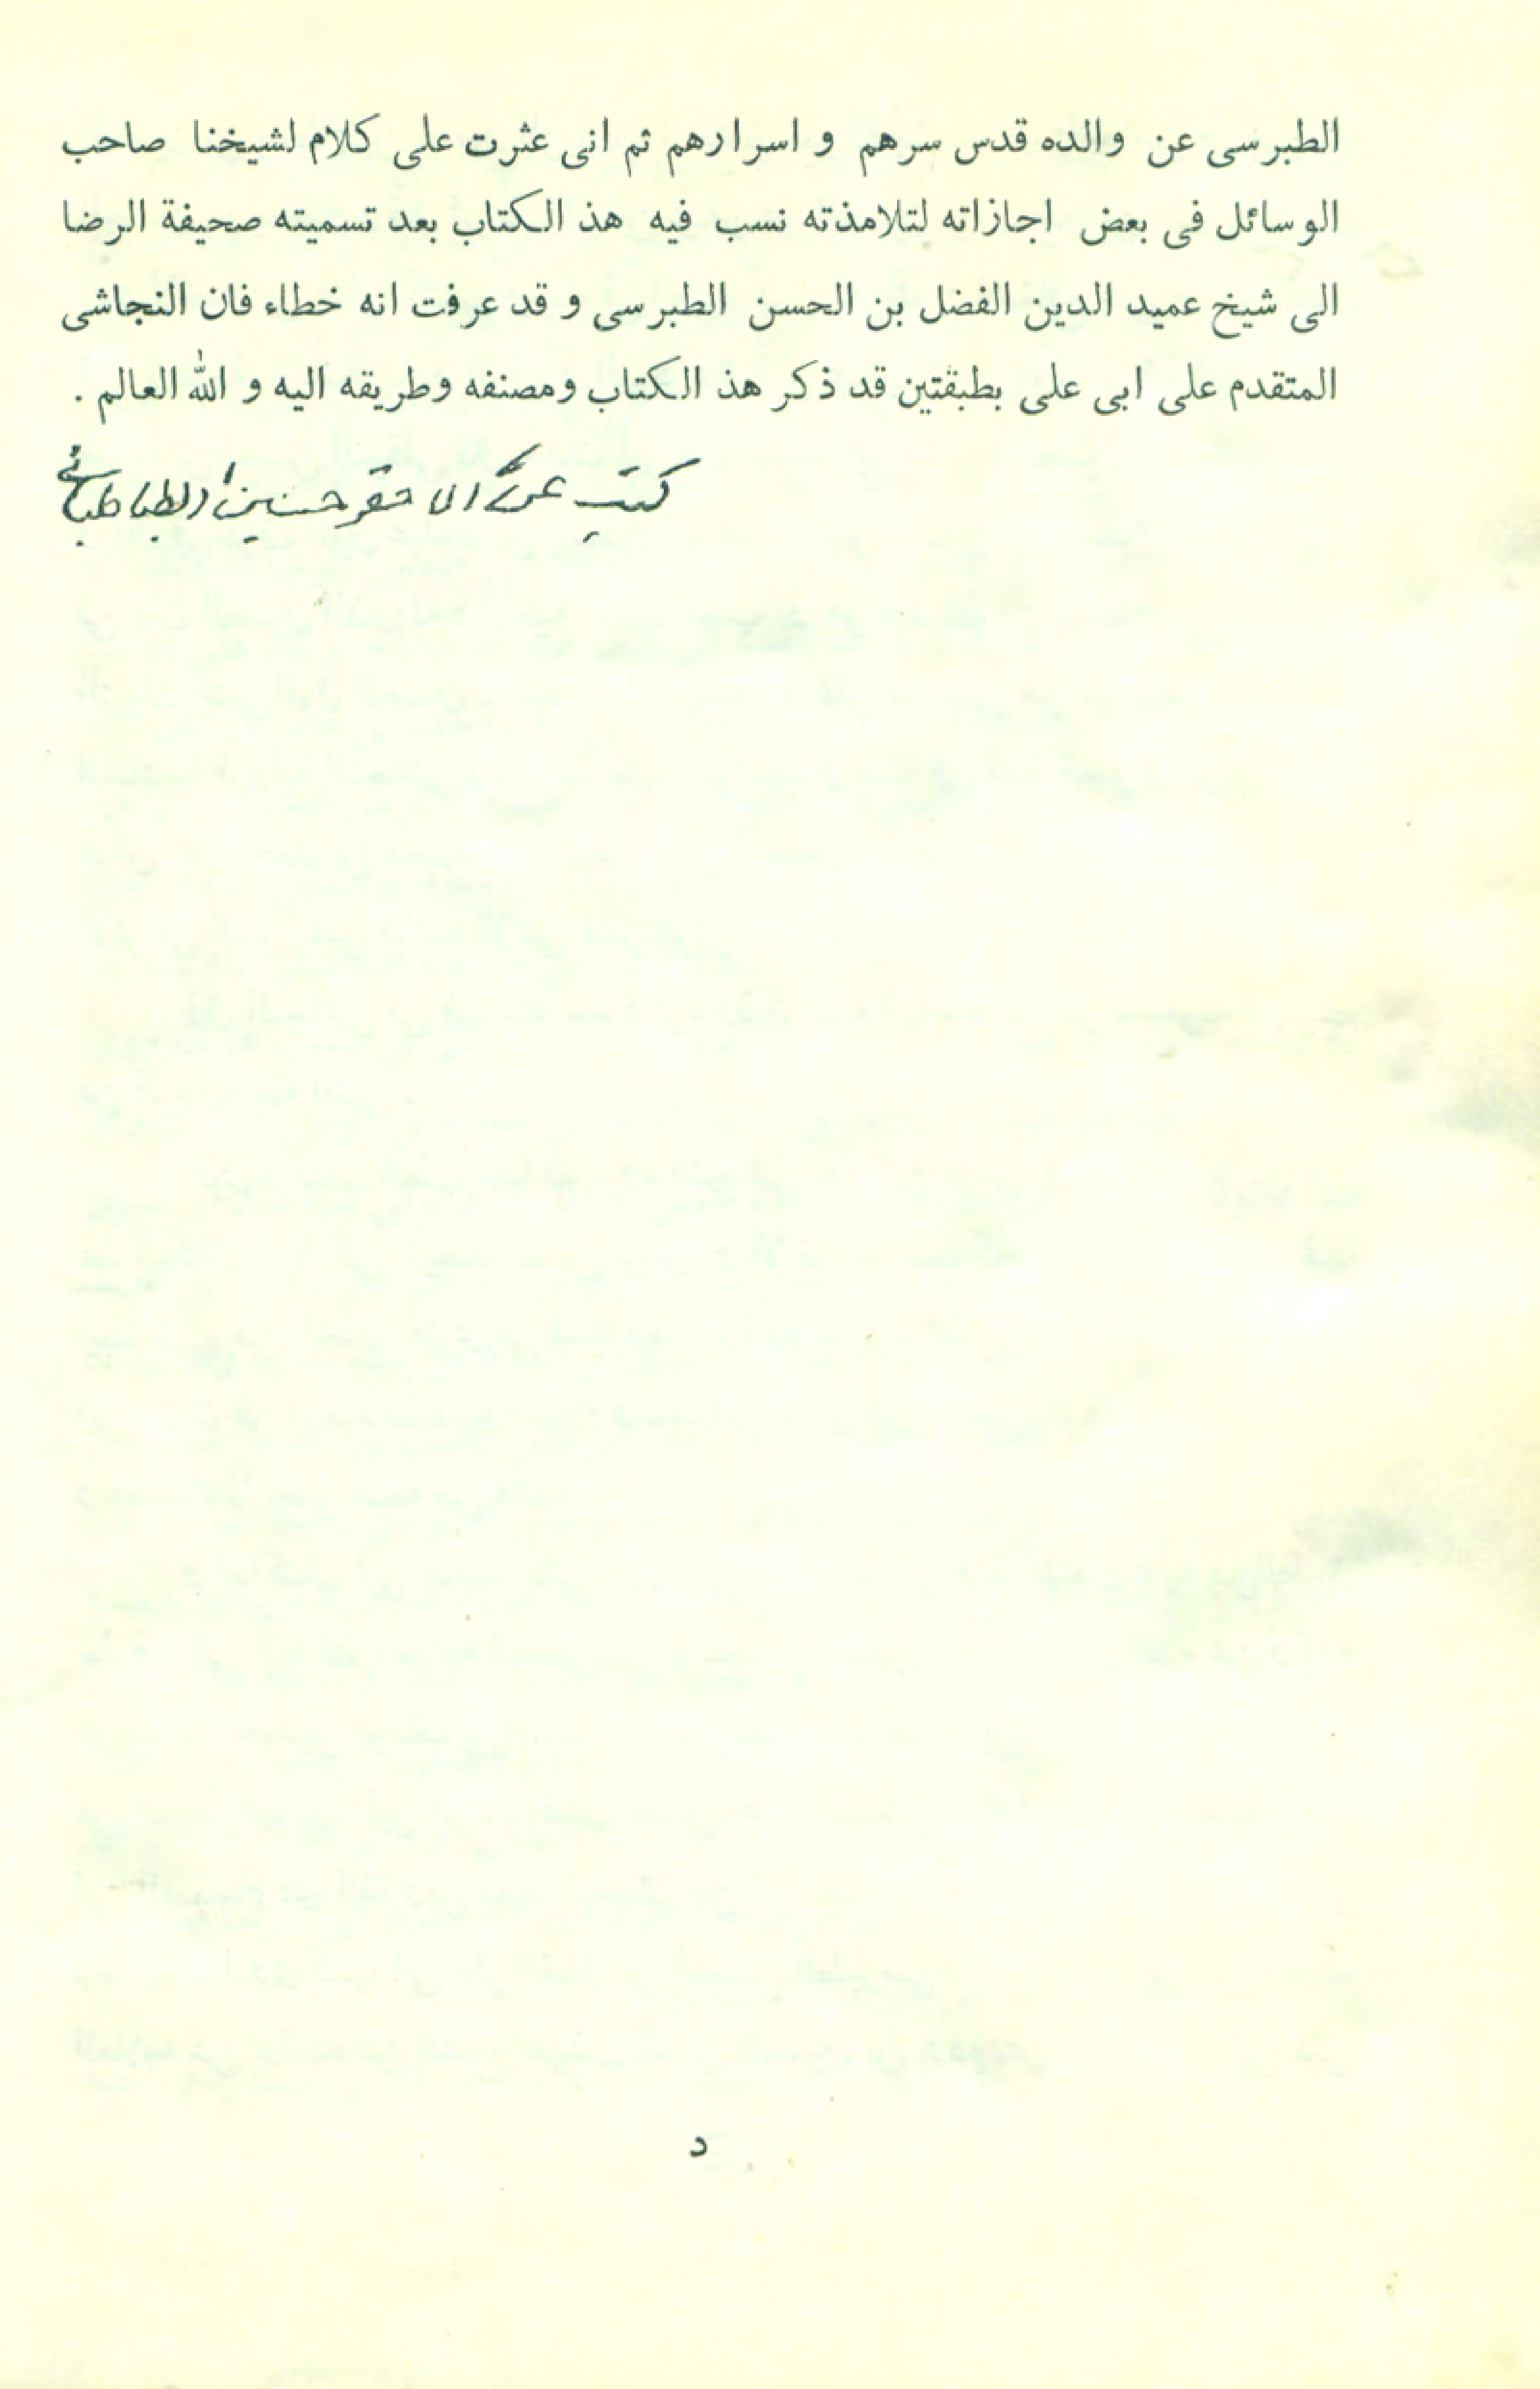 الطبرسی عن والده قدس سرهم و اسرارهم ثم انی عثرت علی كلام لشيخنا صاحب
الوسائل فی بعض اجازاته لتلامذته نسب فيه هذ الكتاب بعد تسميته صحيفة الرضا
الی شيخ عميد الدين الفضل بن الحسن الطبرسی و قد عرفت انه خطاء فان النجاشی
المتقدم علی ابی علی بطبقتين قد ذكر هذ الكتاب ومصنفه وطريقه اليه و الله العالم .
الاحقر حسين الطباطبائی
د